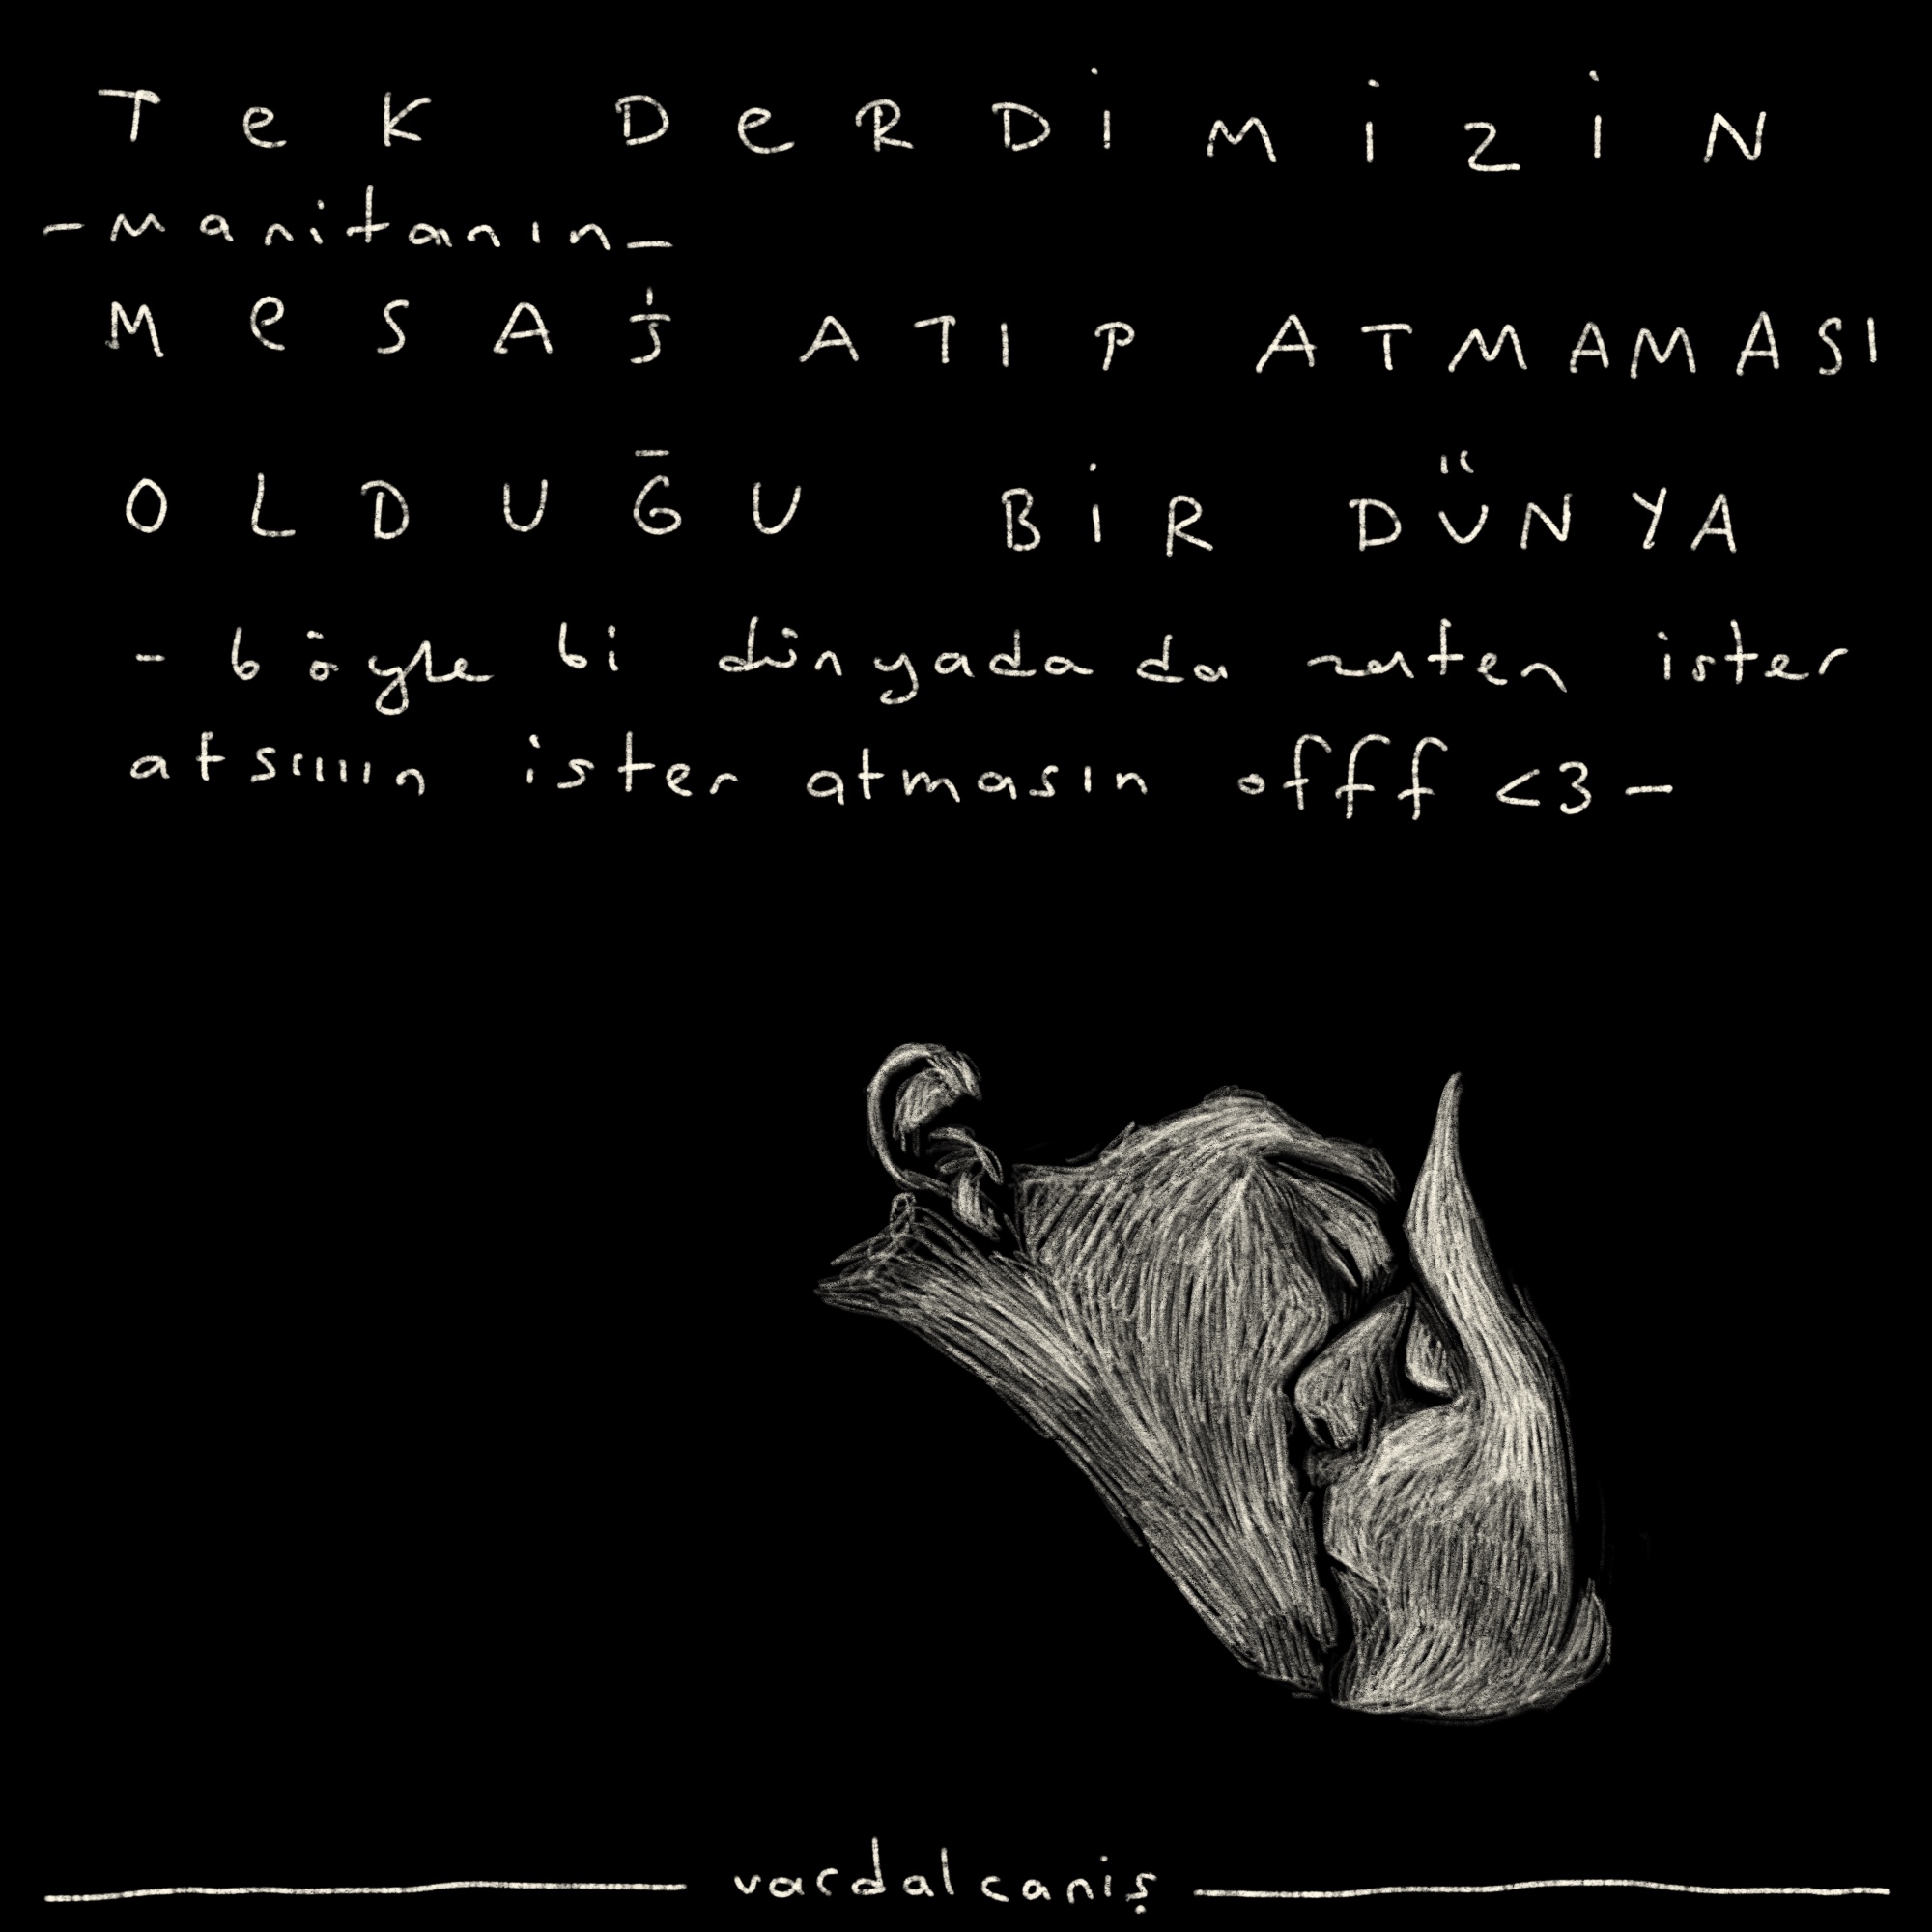 TeK DeRDİMİZİN
-manitanın-
MeSAJ ATIP ATMAMASI
OLDUĞU BİR DÜNYA
- böyle bi dünyada da zaten ister
atsıııın ister atmasın offf <3 -
vardalcaniş